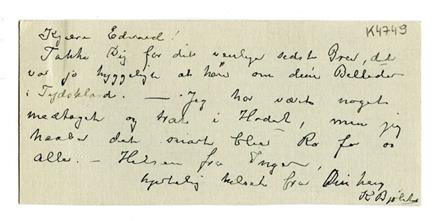 K4749
Kjære Edvard!
Takke Dig for dit venlige sidste Brev, det
var jo hyggeligt at høre om dine Billeder
i Tydskland. — Jeg har været noget
medtaget og træt i Hodet, men jeg
haaber det snart blir Ro for os
alle. — Hilsen fra Inger,
hjertelig hilset fra Din heng
K Bjølstad